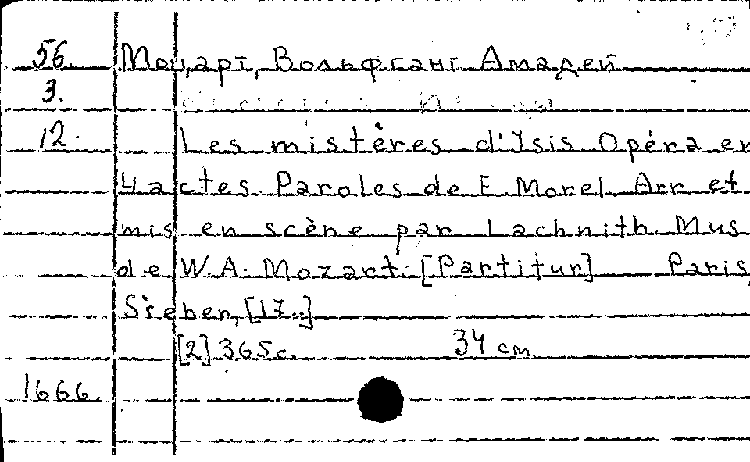 56. Моцарт, Вольфганг Амадей
3.
12. Les mistères d'Isis Opéra en
4 actes Paroles de E Morel Arr et
mis en scène par Lachnith. Mus
de W.A. Mozart. [Partitur] Paris,
Sieber, [17..]
[2] 365 с. 34 cm
1666.